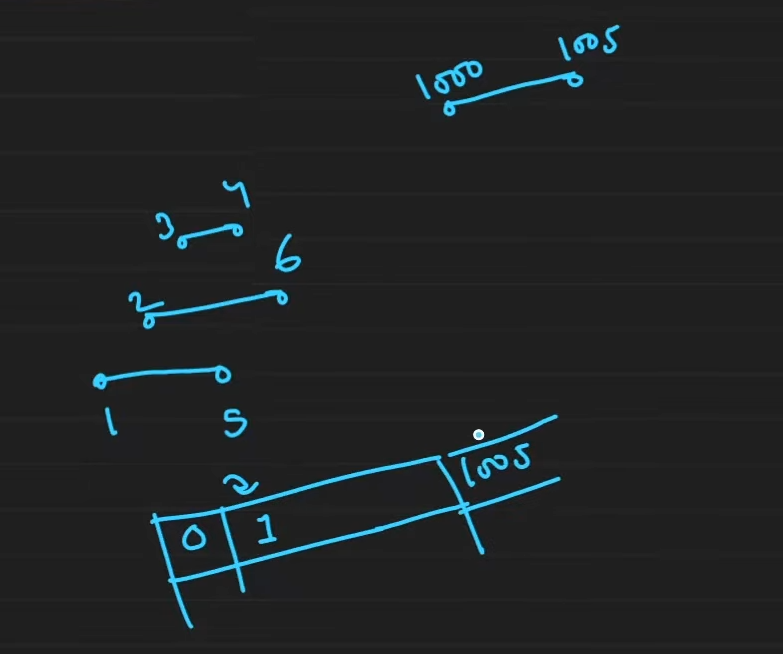 1000 1005
3 4
2 6
1 5
2
0 1 1005